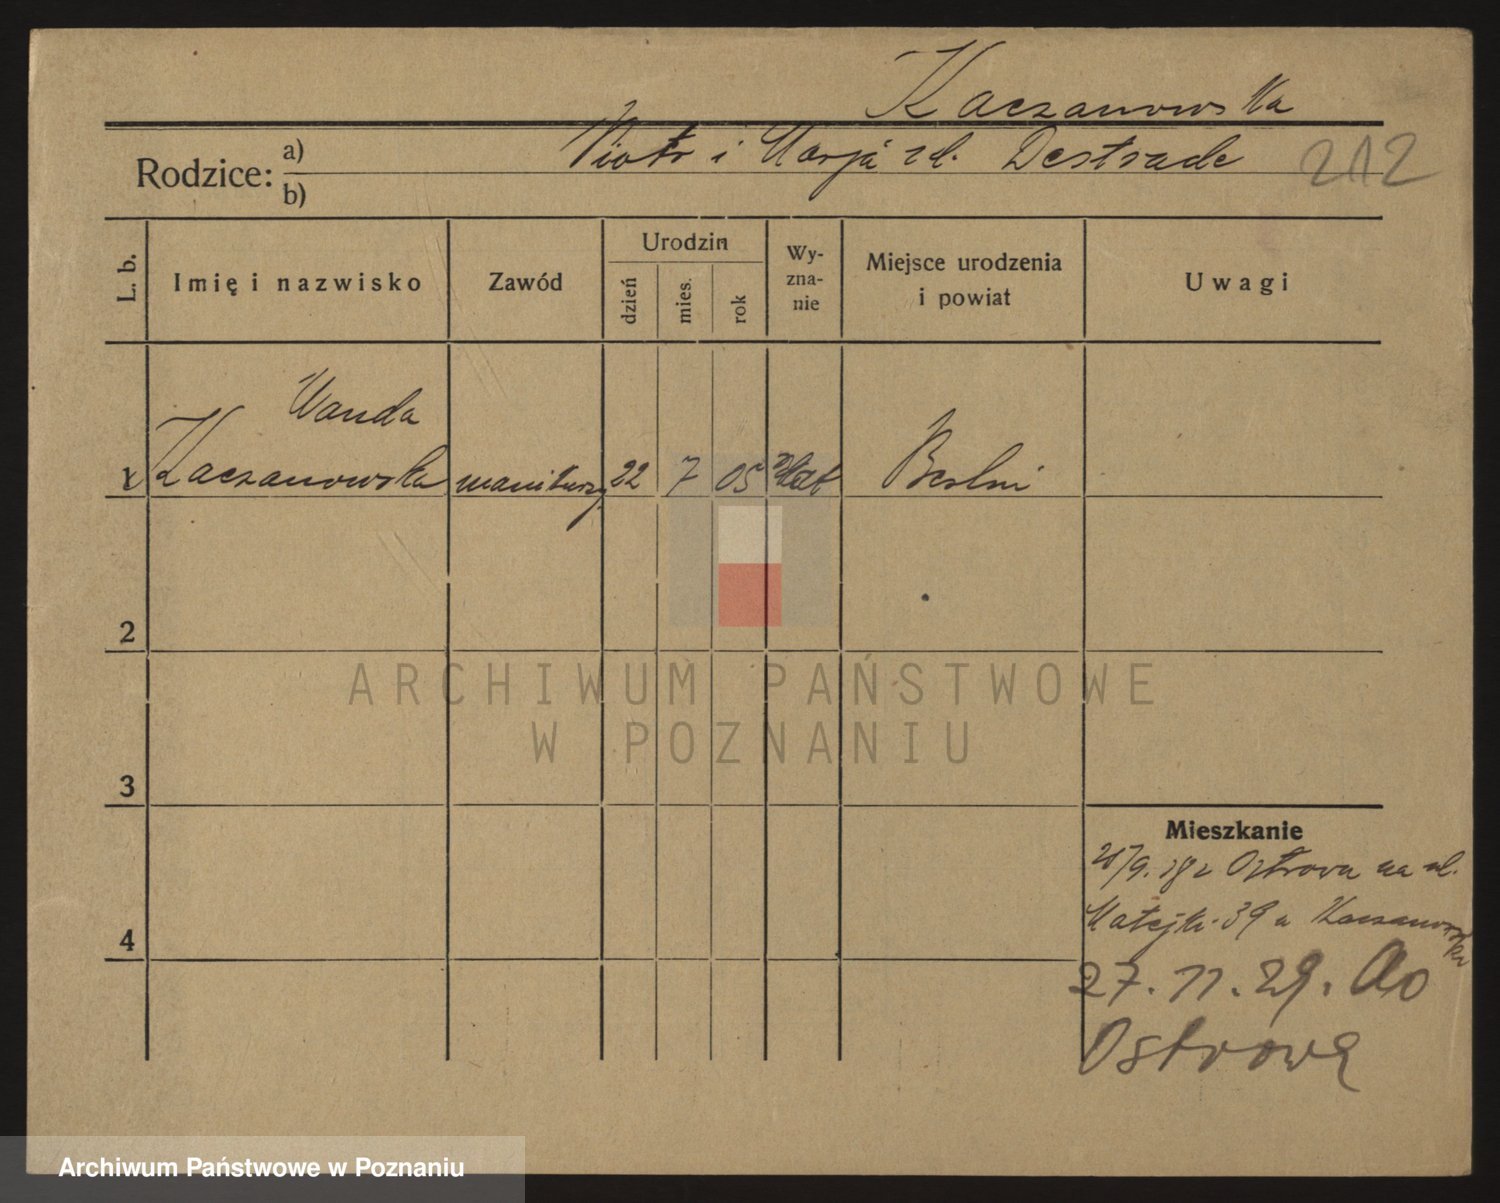 Kaczanowska
Rodzice: a) Piotr i Marja zd. Destrade
b)
212
L. b.
Imię i nazwisko
Zawód
Urodzin
dzień
mies.
rok
Wy-
zna-
nie
Miejsce urodzenia
i powiat
Uwagi
Wanda
1 Kaczanowska 22 7 05 kat Berlin
2
3
4
Mieszkanie
9. 28 z Ostrowa na ul.
Matejki 39 u Kaczanowska
27. 11. 29. do
Ostrowa
ARCHIWUM PAŃSTWOWE
W POZNANIU
Archiwum Państwowe w Poznaniu